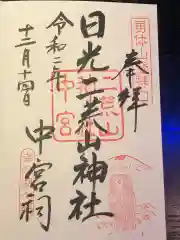 奉拝
日光二荒山神社
中宮祠
令和二年
十二月十四日